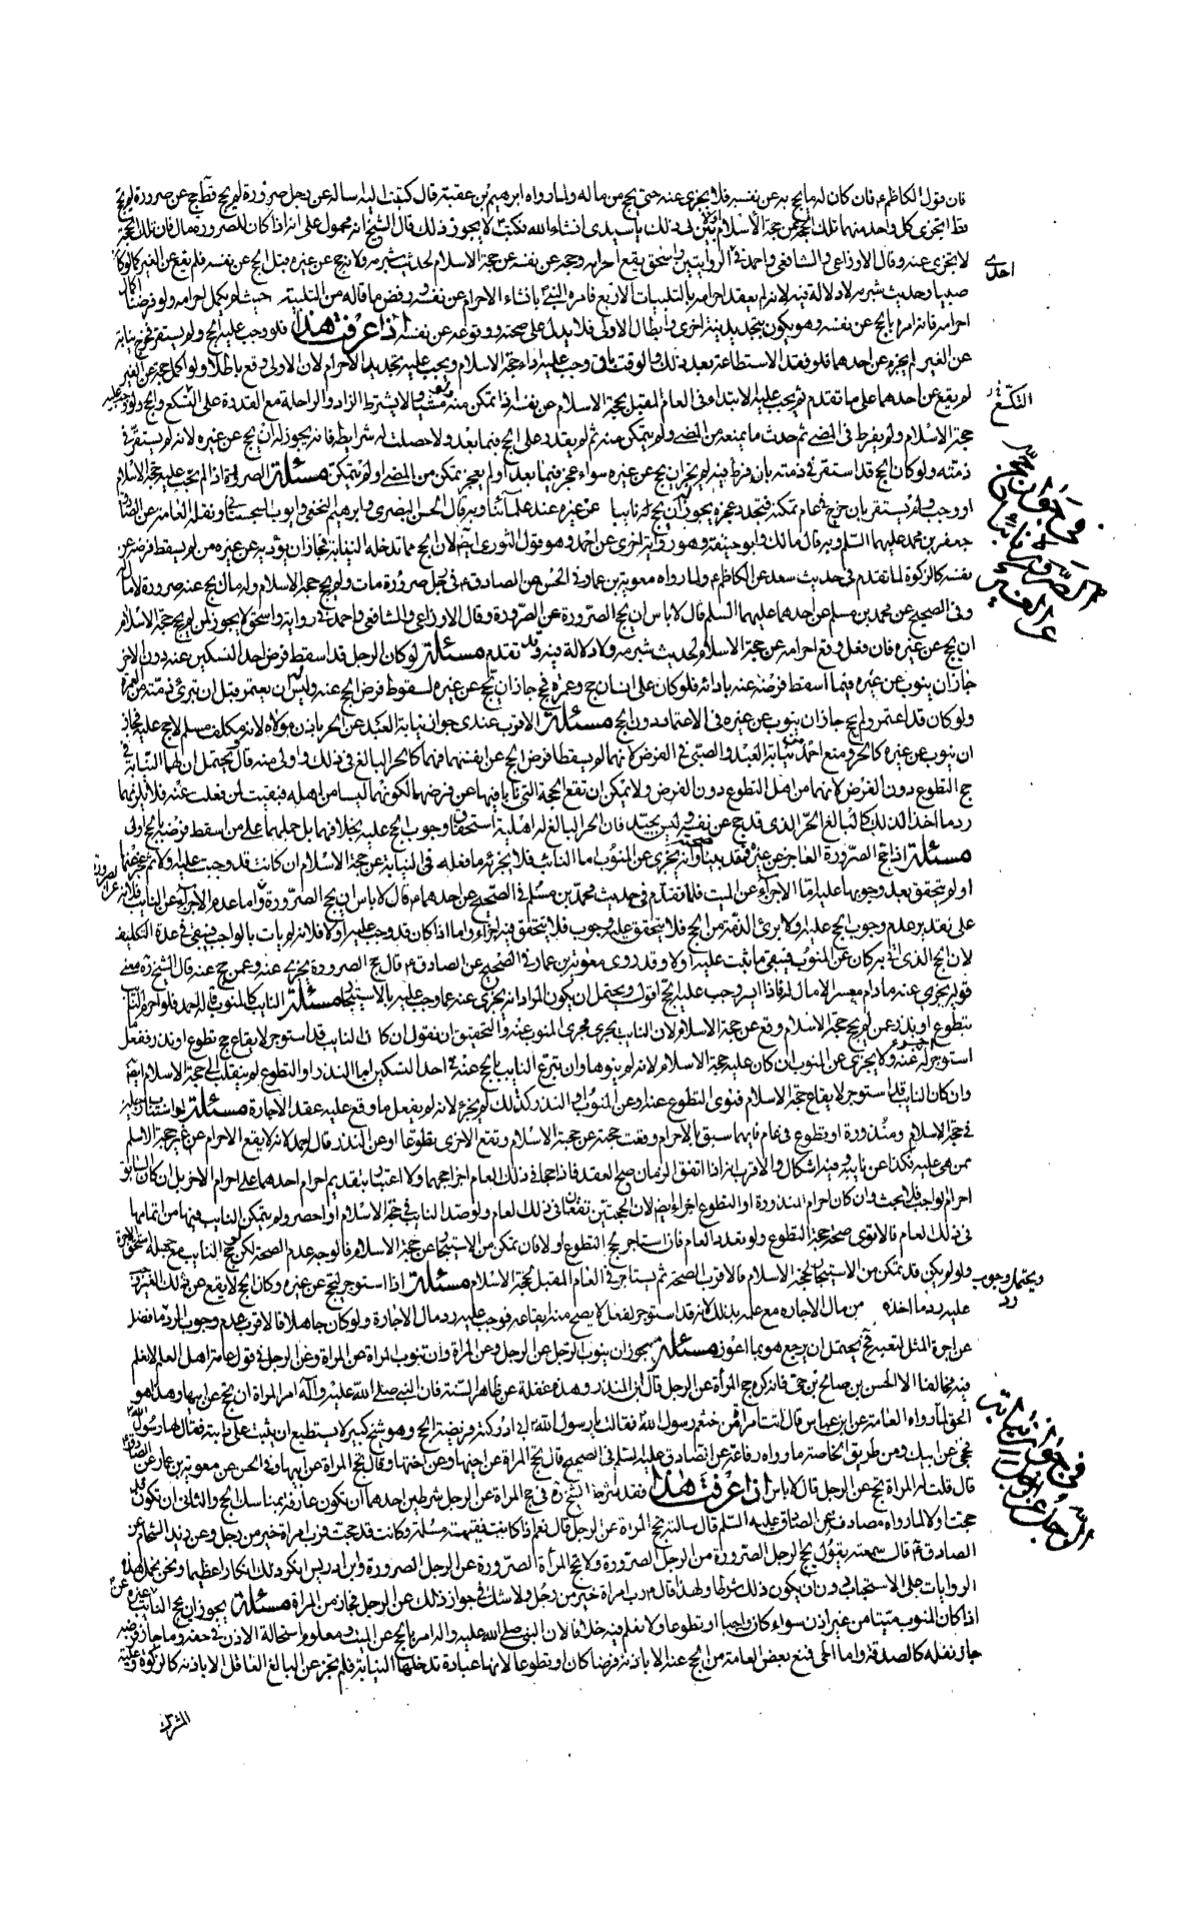 فان قول الكاظم ع فان كان له ما يحج به عن نفسه فلا يجزى عنه حتى يحج من ماله ولما رواه ابرهيم بن عقبة قال كتبت اليه اساله عن رجل صرورة لم يحج قط حج عن صرورة لم يحج
قط ايجزى كل واحد منهما تلك الحجة عن حجة الاسلام بين لى ذلك يا سيدى انشاء الله فكتب لا يجوز ذلك قال الشيخ انه محمول على انه اذا كان للصرورة مال فان تلك الحجة
لا يجزى عنه وقال الاوزاعى والشافعى واحمد فى الروايتين واسحق يقع احرامه وحجه عن نفسه عن حجة الاسلام لحديث شبرمه ولانه حج عن غيره قبل الحج عن نفسه فلم يقع عن الغير كما لو كان
احدى
صبيا وحديث شبرمه لا دلالة فيه لانه لم يعقد احرامه بالتلبيات الاربع فامره النبى بانشاء الاحرام عن نفسه ورفض ما قاله من التلبية حيث لم يكمل احرامه ولو فرضنا كمال
احرامه فانه امره بالحج عن نفسه وهو يكون بتجديد نية اخرى وابطال الاولى فلا يدل على صحته ووقوعه عن نفسه اذا عرفت هذا فلو وجب عليه الحج ولم يستقر فخرج نيابة
عن الغير لم يجزه عن احدهما فلو فقد الاستطاعة بعد ذلك والوقت باق وجب عليه اداء حجة الاسلام ويجب عليه تجديد الاحرام لان الاولى وقع باطلا ولو اكمل حجه عن الغير
لم يقع عن احدهما على ما تقدم ثم يجب عليه الابتداء فى العام المقبل بحجة الاسلام عن نفسه اذا تمكن منه ولا يشترط الزاد والراحلة مع القدرة على التسكع والحج ولو وجب عليه
التسكع
حجة الاسلام ولم يفرط فى المضى ثم حدث ما يمنعه من المضى ولم يتمكن منه ثم لم يقدر على الحج فيما بعد ولا حصلت له شرايطه فانه يجوز له ان يحج عن غيره لانه لم يستقر فى
ذمته ولو كان الحج قد استقر فى ذمته بان فرط فيه لم يجز ان يحج عن غيره سواء عجز فيما بعد او لم يعجز تمكن من المضى او لم يتمكن مسئلة الصرورة اذا لم تجب عليه حجة الاسلام
فى جواز حج الصرورة نائبا عن الغير
او وجب ولم يستقر بان خرج فى عام تمكنه فتجدد عجزه يجوز ان يحج نايبا عن غيره عند علمآئنا وبه قال الحسن البصرى وابرهيم النخعى وايوب السجستانى ونقله العامة عن الصادق
جعفر بن محمد عليهما السلم وبه قال مالك وابو حنيفة وهو رواية اخرى عن احمد وهو قول الثورى ايضا لان الحج مما تدخله النيابة فجاز ان يؤديه عن غيره من لم يسقط فرضه عن
نفسه كالزكوة لما تقدم فى حديث سعد عن الكاظم ع ولما رواه معوية بن عمار فى الحسن عن الصادق ع فى رجل صرورة مات ولم يحج حجة الاسلام وله مال يحج عنه صرورة لا مال له
وفى الصحيح عن محمد بن مسلم عن احدهما عليهما السلم قال لا باس ان يحج الصرورة عن الصرورة وقال الاوزاعى والشافعى واحمد فى رواية واسحق لا يجوز لمن لم يحج حجة الاسلام
ان يحج عن غيره فان فعل وقع احرامه عن حجة الاسلام لحديث شبرمه ولا دلالة فيه وقد تقدم مسئلة لو كان الرجل قد اسقط فرض احد النسكين عنه دون الاخر
جاز ان ينوب عن غيره فيما اسقط فرضه عنه بادائه فلو كان على انسان حج وعمرة فحج جاز ان يحج عن غيره لسقوط فرض الحج عنه وليس له ان يعتمر قبل ان تبرئ ذمته من العمرة
ولو كان قد اعتمر ولم يحج جاز ان ينوب عن غيره فى الاعتمار دون الحج مسئلة الاقرب عندى جواز نيابة العبد عن الحر باذن مولاه لانه مكلف مسلم لا حج عليه فجاز
ان ينوب عن غيره كالحر ومنع احمد من نيابة العبد والصبى فى الفرض لانهما لم يسقطا فرض الحج عن انفسهما فهما كالحر البالغ فى ذلك واولى منه قال ويحتمل ان لهما النيابة فى
حج التطوع دون الفرض لانهما من اهل التطوع دون الفرض ولا يمكن ان تقع الحجة التى نابا فيها عن فرضهما لكونهما ليسا من اهله فبقيت لمن فعلت عنه فلا يلزمهما
رد ما اخذا لذلك كالبالغ الحر الذى قد حج عن نفسه وليس بجيد فان الحر البالغ له اهلية استحقاق وجوب الحج عليه بخلافهما بل حملهما على من اسقط فرضه بالحج اولى
مسئلة اذا حج الصرورة العاجز عن غيره فقد بينا انه يجزى عن المنوب اما النائب فلا يجزئه ما فعله فى النيابة عن حجة الاسلام ان كانت قد وجبت عليه ولا
او لم يتحقق بعد وجوبها عليه اما الاجزاء عن الميت فلما تقدم فى حديث محمد بن مسلم فى الصحيح عن احدهما ع قال لا باس ان يحج الصرورة واما عدم الاجزاء عن النايب فلانه
على تقدير عدم وجوب الحج عليه اولا برئ الذمة من الحج فلا يتحقق عليه وجوب فلا يتحقق فيه اجزاء واما اذا كان قد وجب عليه اولا فلانه لم يات بالواجب فيبقى فى عهدة التكليف
لان الحج الذى اتى به كان عن المنوب فيبقى ما ثبت عليه اولا وقد روى معوية بن عمار فى الصحيح عن الصادق ع قال حج الصرورة يجزى عنه وعمن حج عنه قال الشيخ ره معنى
قوله يجزى عنه ما دام معسرا لا مال له فاذا ايسر وجب عليه الحج اقول ويحتمل ان يكون المراد انه يجزى عنه عما وجب عليه بالاستيجار مسئلة النايب كالمنوب قاله احمد فلو احرم النايب
بتطوع او بنذر عمن لم يحج حجة الاسلام وقع عن حجة الاسلام لان النايب يجرى مجرى المنوب عنه والتحقيق ان نقول ان كان النايب قد استوجر لايقاع حج تطوع او نذر ففعل ما
استوجر له عنه ولا يجزى عن المنوب ان كان عليه حجة الاسلام لانه لم ينوها وان تبرع النايب بالحج عنه فى احد النسكين اما النذر او التطوع لم ينقلب الى حجة الاسلام ايضا
وان كان النايب قد استوجر لايقاع حجة الاسلام فنوى التطوع عنه او عن المنوب او النذر كذلك لم يجزه لانه لم يفعل ما وقع عليه عقد الاجارة مسئلة لو استناب اثنين
فى حجة الاسلام ومنذورة او تطوع فى عام فايهما سبق بالاحرام وقعت حجته عن حجة الاسلام وتقع الاخرى تطوعا او عن النذر قال احمد لانه لا يقع الاحرام عن غير حجة الاسلام
ممن هى عليه فكذا عن نايبه وفيه اشكال والاقرب انه اذا اتفق الزمان صح العقد فاذا حجا فى ذلك العام اجزا حجهما ولا اعتبار بتقديم احرام احدهما على احرام الاخر بل ان كان السابق
احرام الواجب فلا بحث وان كان احرام المنذورة او التطوع اجزاء ايضا لان الحجتين تقعان فى ذلك العام ولو صد النايب فى حجة الاسلام او احصر ولم يتمكن النايب فيهما من اتمامها
فى ذلك العام فالاقوى صحة حجة التطوع ولو تعدد العام فان استاجر لحج التطوع اولا فان تمكن من الاستيجار عن حجة الاسلام فالوجه عدم الصحة لكن النايب مع جهله يستحق الاجرة
ولو لم يكن قد تمكن من الاستيجار لحجة الاسلام فالاقرب الصحة ثم يستاجر فى العام المقبل لحجة الاسلام مسئلة اذا استوجر ليحج عن غيره وكان الحج لا يقع عن ذلك الغير وجب
ويحتمل وجوب رد
عليه رد ما اخذه من مال الاجارة مع علمه بذلك لانه قد استوجر لفعل لا يصح منه ايقاعه فوجب عليه رد مال الاجارة ولو كان جاهلا فالاقرب عدم وجوب الرد ما فضل
عن اجرة المثل لتعبه فى ويحتمل ان يرجع هو بما اعوز مسئلة يجوز ان ينوب الرجل عن الرجل وعن المراة وان تنوب المراة عن المراة وعن الرجل فى قول عامة اهل العلم لا نعلم
فيه مخالفا الا الحسن بن صالح بن حى فانه كره حج المرأة عن الرجل قال ابن المنذر وهذه غفلة عن ظاهر السنة فان النبى صلى الله عليه وآله امر المراة ان تحج عن ابيها وهذا هو
الحق لما رواه العامة عن ابن عباس قال اتت امراة من خثعم رسول الله فقالت يا رسول الله ان ابى ادركته فريضة الحج وهو شيخ كبير لا يستطيع ان يثبت على دابته فقال لها رسول الله
فى جواز نيابة الرجل عن الرجل
فحجى عن ابيك ومن طريق الخاصة ما رواه رفاعة عن الصادق عليه السلم فى الصحيح قال تحج المراة عن اختها وعن اخيها وقال تحج المراة عن ابيها وفى الحسن عن معوية بن عمار عن الصادق
قال قلت له المراة تحج عن الرجل قال لا باس اذا عرفت هذا فقد شرط الشيخ ره فى حج المراة عن الرجل شرطين احدهما ان تكون عارفة بمناسك الحج والثانى ان تكون قد
حجت اولا لما رواه مصادف عن الصادق عليه السلم قال سالته تحج المراة عن الرجل قال نعم اذا كانت فقيهة مسلمة وكانت قد حجت فرب امراة خير من رجل وعن زيد الشحام عن
الصادق ع قال سمعته يقول يحج الرجل الصرورة من الرجل الصرورة ولا تحج المرأة الصرورة عن الرجل الصرورة وابن ادريس انكر ذلك انكارا عظيما ونحن نحمل هذه
الروايات على الاستحباب دون ان يكون ذلك شرطا ولهذا قال ع رب امراة خير من رجل ولا شك فى جواز ذلك عن الرجل فجاز من المراة مسئلة يجوز ان يحج النائب عن غيره
اذا كان المنوب ميتا من غير اذن سواء كان واجبا او تطوعا ولا نعلم فيه خلافا لان النبى صلى الله عليه واله امر بالحج عن الميت ومعلوم استحالة الاذن فى حقه وما جاز فرضه
جاز نفله كالصدقة واما الحى فمنع بعض العامة من الحج عنه الا باذنه فرضا كان او تطوعا لانها عبادة تدخلها النيابة فلم تجز عن البالغ العاقل الا باذنه كالزكوة